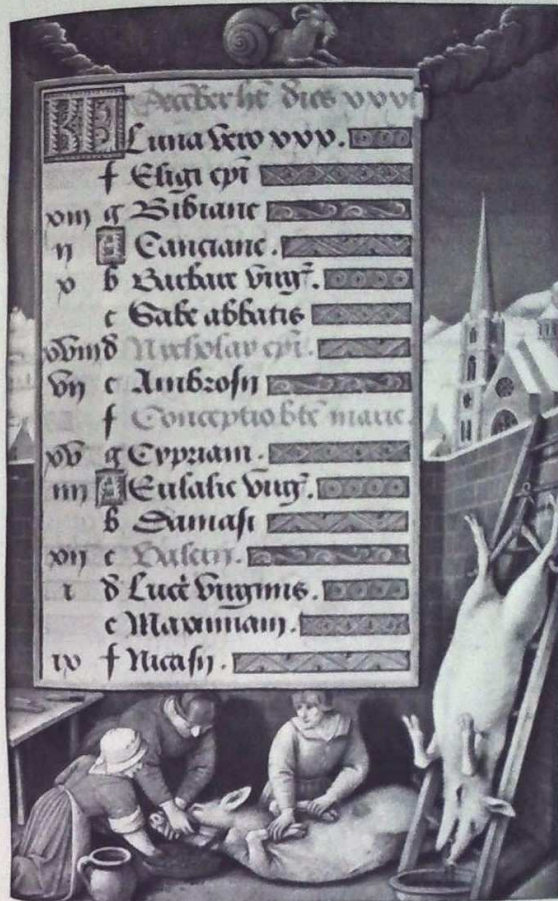 KL December ht dies xxxi
Luna vero xxx.
f Eligi epi
xiii g Bibiane
ii A Canciane.
x b Barbare virg.
c Sabe abbatis
xviii d Nicholay epi.
vii e Ambrosii
f Conceptio bte marie.
xv g Cypriani.
iiii A Eulalie virg.
b Damasi
xii c
i d Lucie virginis.
e Maximiani.
ix f Nicasii.